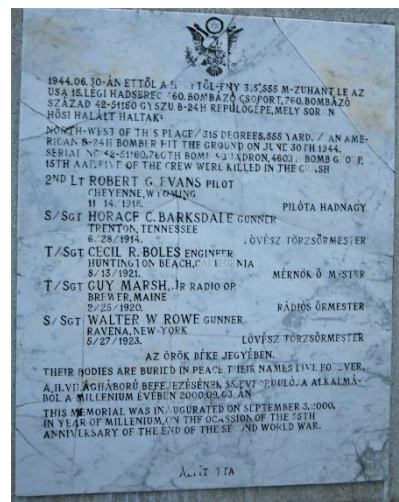 1944.06.30-ÁN ETTŐL A 315°,555 M-ZUHANT LE AZ
USA 15. LÉGI HADSEREG 460. BOMBÁZÓ CSOPORT, 760. BOMBÁZÓ
SZÁZAD 42-51160 GYSZU B-24H REPÜLŐGÉPE, MELY SORÁN
HŐSI HALÁLT HALTAK:
NORTH-WEST OF THIS PLACE/315 DEGREES, 555 YARD./ AN AME-
RICAN B-24H BOMBER HIT THE GROUND ON JUNE 30TH 1944.
SERIAL NO 42-51160, 760TH BOMB SQUADRON, 460TH BOMB GROUP,
15TH AAF. FIVE OF THE CREW WERE KILLED IN THE CRASH
2ND LT ROBERT G. EVANS PILOT
CHEYENNE, WYOMING
11 14. 1918. PILÓTA HADNAGY
S/SGT HORACE C. BARKSDALE GUNNER
TRENTON, TENNESSEE
6/28/1914. LÖVÉSZ TÖRZSŐRMESTER
T/SGT CECIL R. BOLES ENGINEER
HUNTINGTON BEACH, CALIFORNIA
8/13/1921. MÉRNÖK ŐRMESTER
T/SGT GUY MARSH, JR RADIO OP.
BREWER, MAINE
2/25/1920. RÁDIÓS ŐRMESTER
S/SGT WALTER W. ROWE GUNNER
RAVENA, NEW-YORK
5/27/1923. LÖVÉSZ TÖRZSŐRMESTER
AZ ÖRÖK BÉKE JEGYÉBEN.
THEIR BODIES ARE BURIED IN PEACE THEIR NAMES LIVE FOREVER.
A,II.VILÁGHÁBORÚ BEFEJEZÉSÉNEK 55. ÉVFORDULÓJA ALKALMÁ-
BÓL A MILLENIUM ÉVÉBEN 2000.09.03.ÁN
THIS MEMORIAL WAS INAUGURATED ON SEPTEMBER 3, 2000.
IN YEAR OF MILLENIUM, ON THE OCASSION OF THE 55TH
ANNIVERSARY OF THE END OF THE SECOND WORLD WAR.